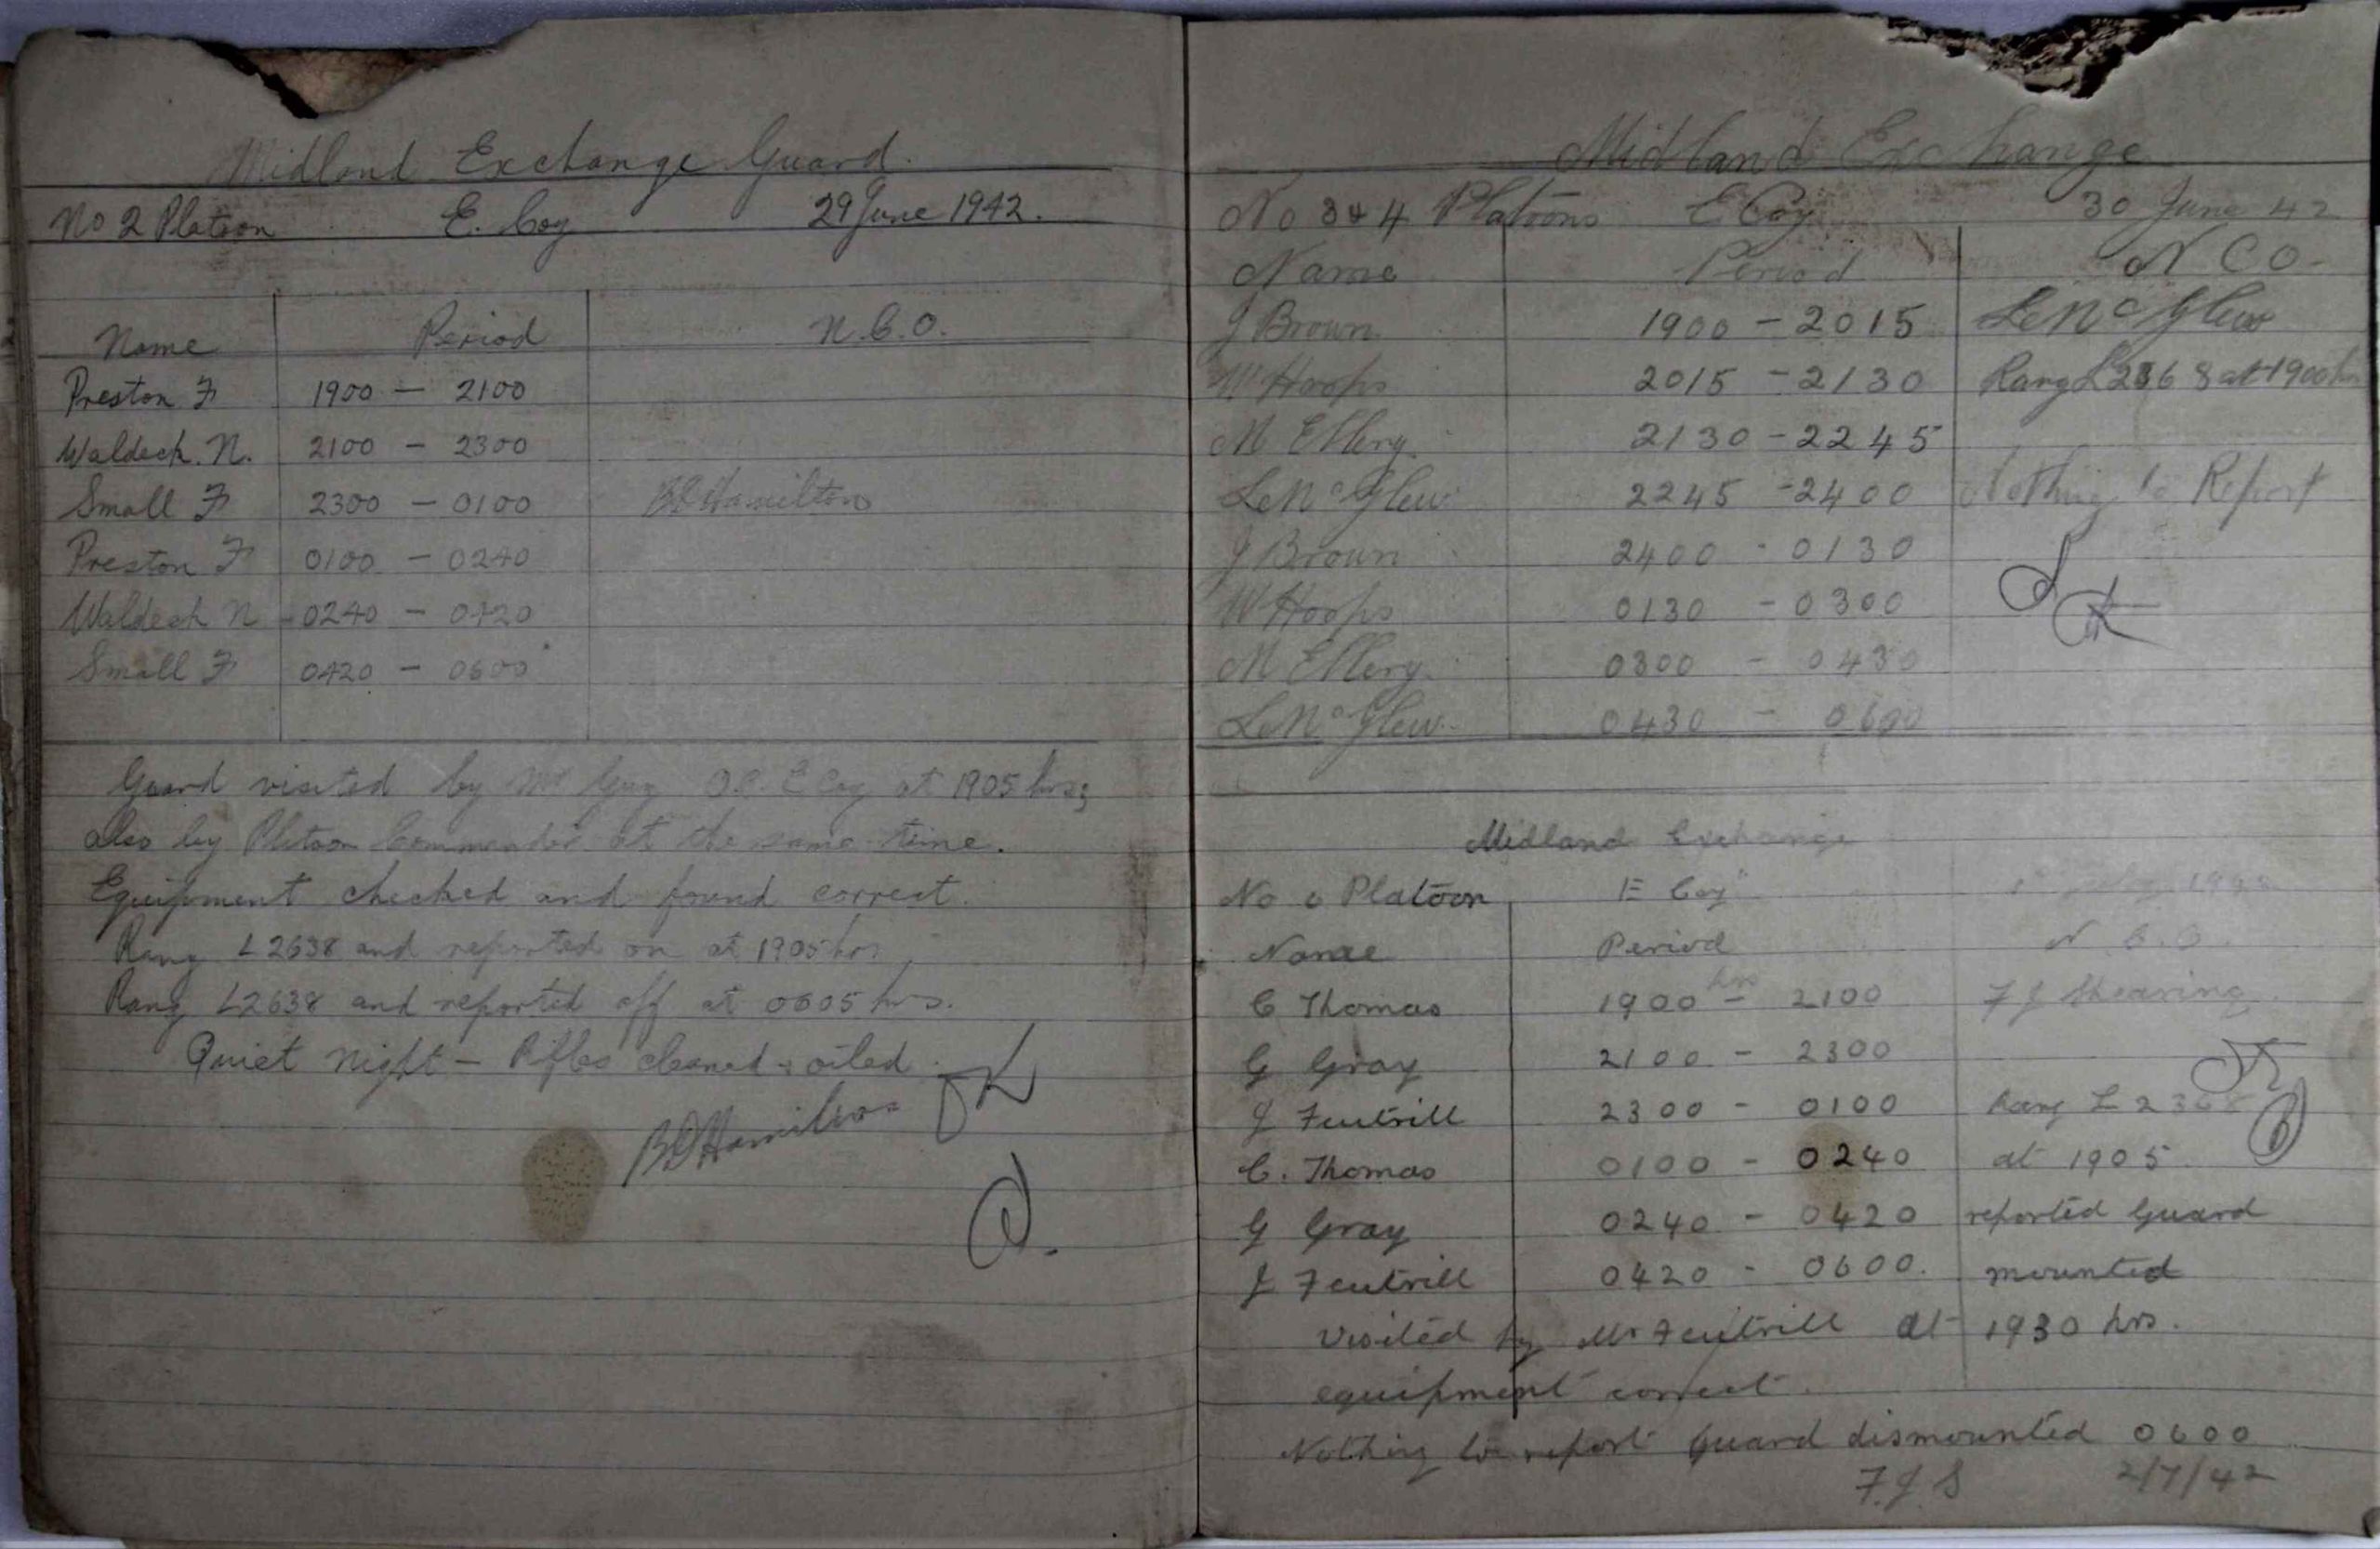 Midland Exchange Guard.
No 2 Platoon E. Coy 29 June 1942.
Name Period N.C.O.
Preston F 1900 — 2100
Waldeck. N. 2100 — 2300
Small F 2300 — 0100 B D Hamilton
Preston F 0100 — 0240
Waldeck N 0240 — 0420
Small F 0420 — 0600
Guard visited by Mr Guy O.C. E Coy at 1905 hrs;
also by Platoon Commander at the same time.
Equipment checked and found correct.
Rang L2638 and reported on at 1905 hrs
Rang L2638 and reported off at 0605 hrs.
Quiet night — Rifles cleaned & oiled.
B D Hamilton
Midland Exchange
No 3 & 4 Platoons E Coy 30 June 42
Name Period N CO
J Brown 1900 - 2015 Le McGlew
W Hoops 2015 - 2130 Rang L2368 at 1900 hrs
M Ellery 2130 - 2245
Le McGlew 2245 - 2400 Nothing to Report
J Brown 2400 - 0130
W Hoops 0130 - 0300
M Ellery 0300 - 0430
Le McGlew 0430 - 0600
Midland Exchange
No Platoon E Coy 1942
Name Period N.C.O.
C Thomas 1900 hrs - 2100 F J Shearing
G Gray 2100 - 2300
J Feutrill 2300 - 0100 Rang L 236
C. Thomas 0100 - 0240 at 1905
G Gray 0240 - 0420 reported Guard
J Feutrill 0420 - 0600. mounted
Visited by Mr Feutrill at 1930 hrs.
equipment correct.
Nothing to report Guard dismounted 0600
F.J.S 2/7/42